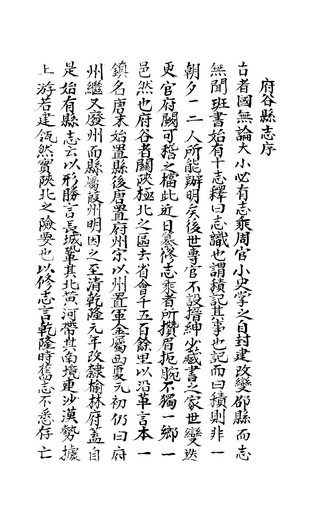 府谷縣志序
古者國無論大小必有志乘周官小史掌之自封建改變郡縣而志
無聞班書始有十志釋曰志識也謂積記其事也記而曰積則非一
朝夕一二人所能辦明矣後世專官不設搢紳少藏書之家世變迭
更官府闕可稽之檔此近日纂修志乘者所攢眉扼腕不獨一鄉一
邑然也府谷者關陝極北之區去省會千五百餘里以沿革言本一
鎮名唐末始置縣後唐置府州宋以州置軍金屬西夏元初仍曰府
州繼又廢州而縣屬葭州明因之至清乾隆元年改隸榆林府蓋自
是始有縣志云以形勝言長城峯其北黃河帶其南境東沙漠勢據
上游若建瓴然實陝北之險要也以修志言乾隆時舊志不悉存亡